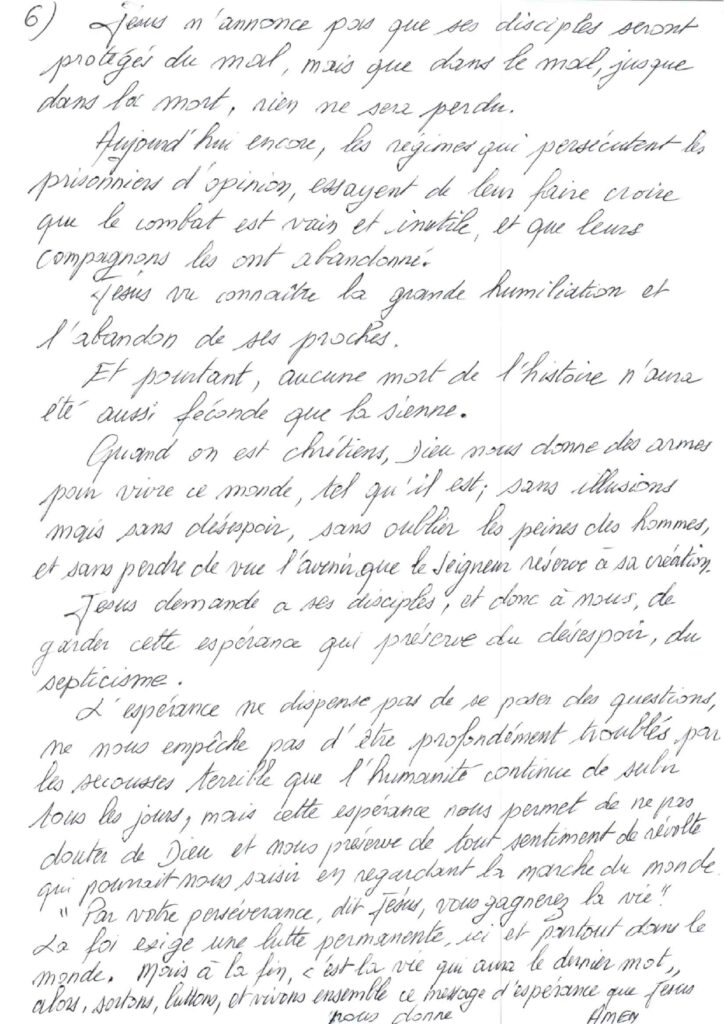 6) Jésus n'annonce pas que ses disciples seront
protégés du mal, mais que dans le mal, jusque
dans la mort, rien ne sera perdu.
Aujourd'hui encore, les régimes qui persécutent les
prisonniers d'opinion, essayent de leur faire croire
que le combat est vain et inutile, et que leurs
compagnons les ont abandonné.
Jésus va connaître la grande humiliation et
l'abandon de ses proches.
Et pourtant, aucune mort de l'histoire n'aura
été aussi féconde que la sienne.
Quand on est chrétiens, Dieu nous donne des armes
pour vivre ce monde, tel qu'il est; sans illusions
mais sans désespoir, sans oublier les peines des hommes,
et sans perdre de vue l'avenir que le Seigneur réserve à sa création.
Jésus demande a ses disciples, et donc à nous, de
garder cette espérance qui préserve du désespoir, du
septicisme.
L'espérance ne dispense pas de se poser des questions,
ne nous empêche pas d'être profondément troublés par
les secousses terrible que l'humanité continue de subir
tous les jours, mais cette espérance nous permet de ne pas
douter de Dieu et nous préserve de tout sentiment de révolte
qui pourrait nous saisir en regardant la marche du monde.
"Par votre persévérance, dit Jésus, vous gagnerez la vie".
La foi exige une lutte permanente, ici et partout dans le
monde. Mais à la fin, c'est la vie qui aura le dernier mot,,
alors, sortons, luttons, et vivons ensemble ce message d'espérance que Jésus
nous donne AMEN